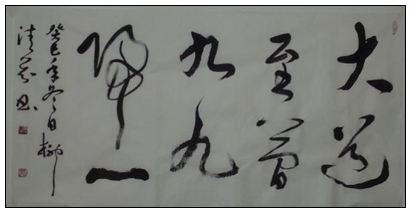 大道
至简
九九
归一
癸巳年冬日柳
清